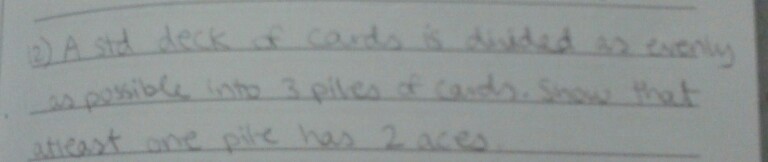 12) A std deck of cards is divided as evenly
as possible into 3 piles of cards. Show that
atleast one pile has 2 aces.